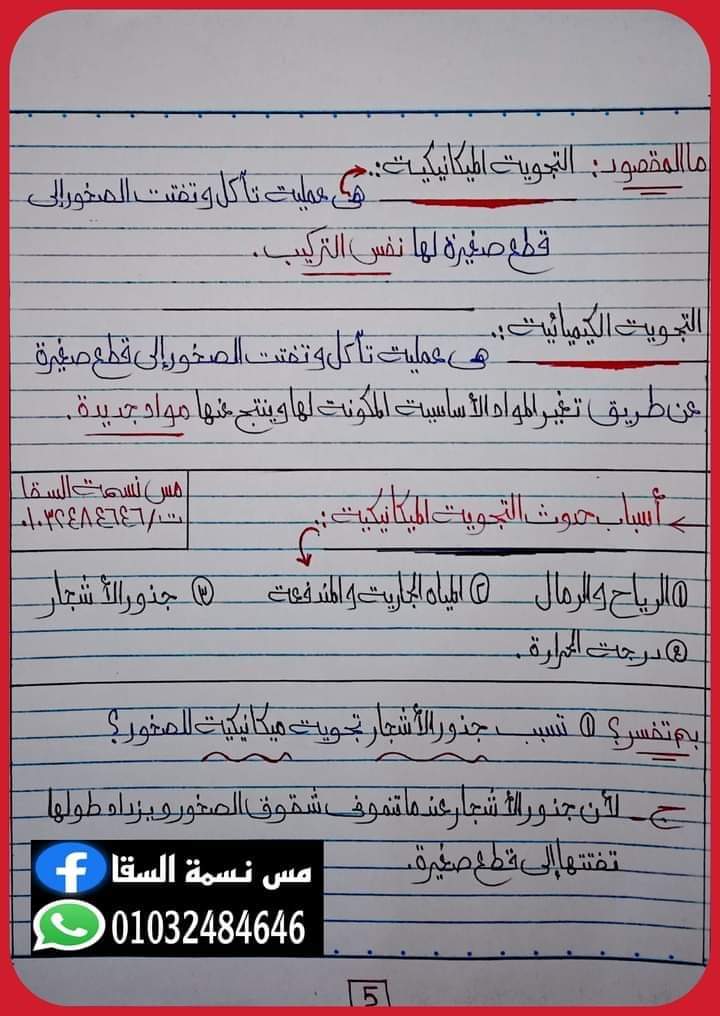 ما المقصود: التجوية الميكانيكية:
هى عملية تآكل وتفتت الصخور إلى
قطع صغيرة لها نفس التركيب.
التجوية الكيميائية:
هى عملية تآكل وتفتت الصخور إلى قطع صغيرة
عن طريق تغير المواد الأساسية المكونة لها وينتج عنها مواد جديدة.
مس نسمة السقا
ت/٠١٠٣٢٤٨٤٦٤٦
أسباب حدوث التجوية الميكانيكية:
① الرياح والرمال ② المياه الجارية والمندفعة ③ جذور الأشجار
④ درجة الحرارة.
بم تفسر؟ ① تسبب جذور الأشجار تجوية ميكانيكية للصخور؟
ج- لأن جذور الأشجار عندما تنمو فى شقوق الصخور ويزداد طولها
تفتتها إلى قطع صغيرة.
مس نسمة السقا
01032484646
5